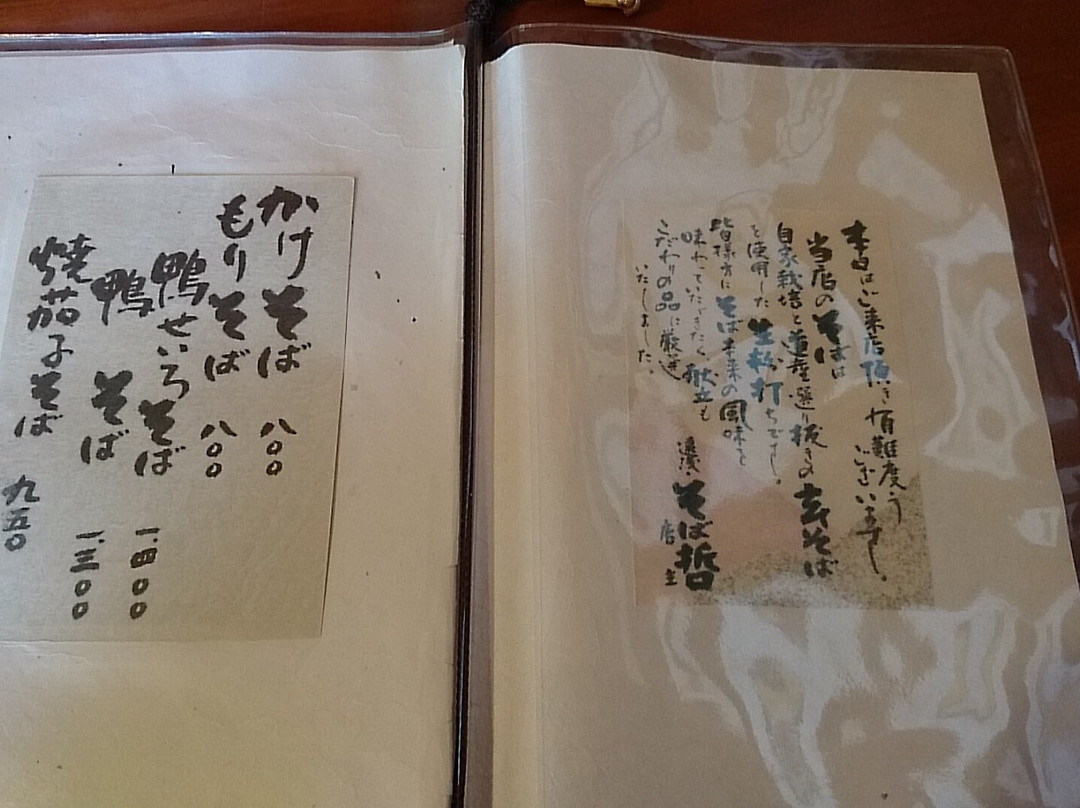 本日はご来店頂き有難度う
ございます。
当店のそばは
自家栽培と道産選り抜きの玄そば
を使用した生粉打ちです。
皆様方にそば本来の風味を
味わっていただきたく献立も
こだわりの品に厳選
いたしました。
そば哲
店主
かけそば 八〇〇
もりそば 八〇〇
鴨せいろそば 一.四〇〇
鴨そば 一.三〇〇
焼茄子そば 九五〇